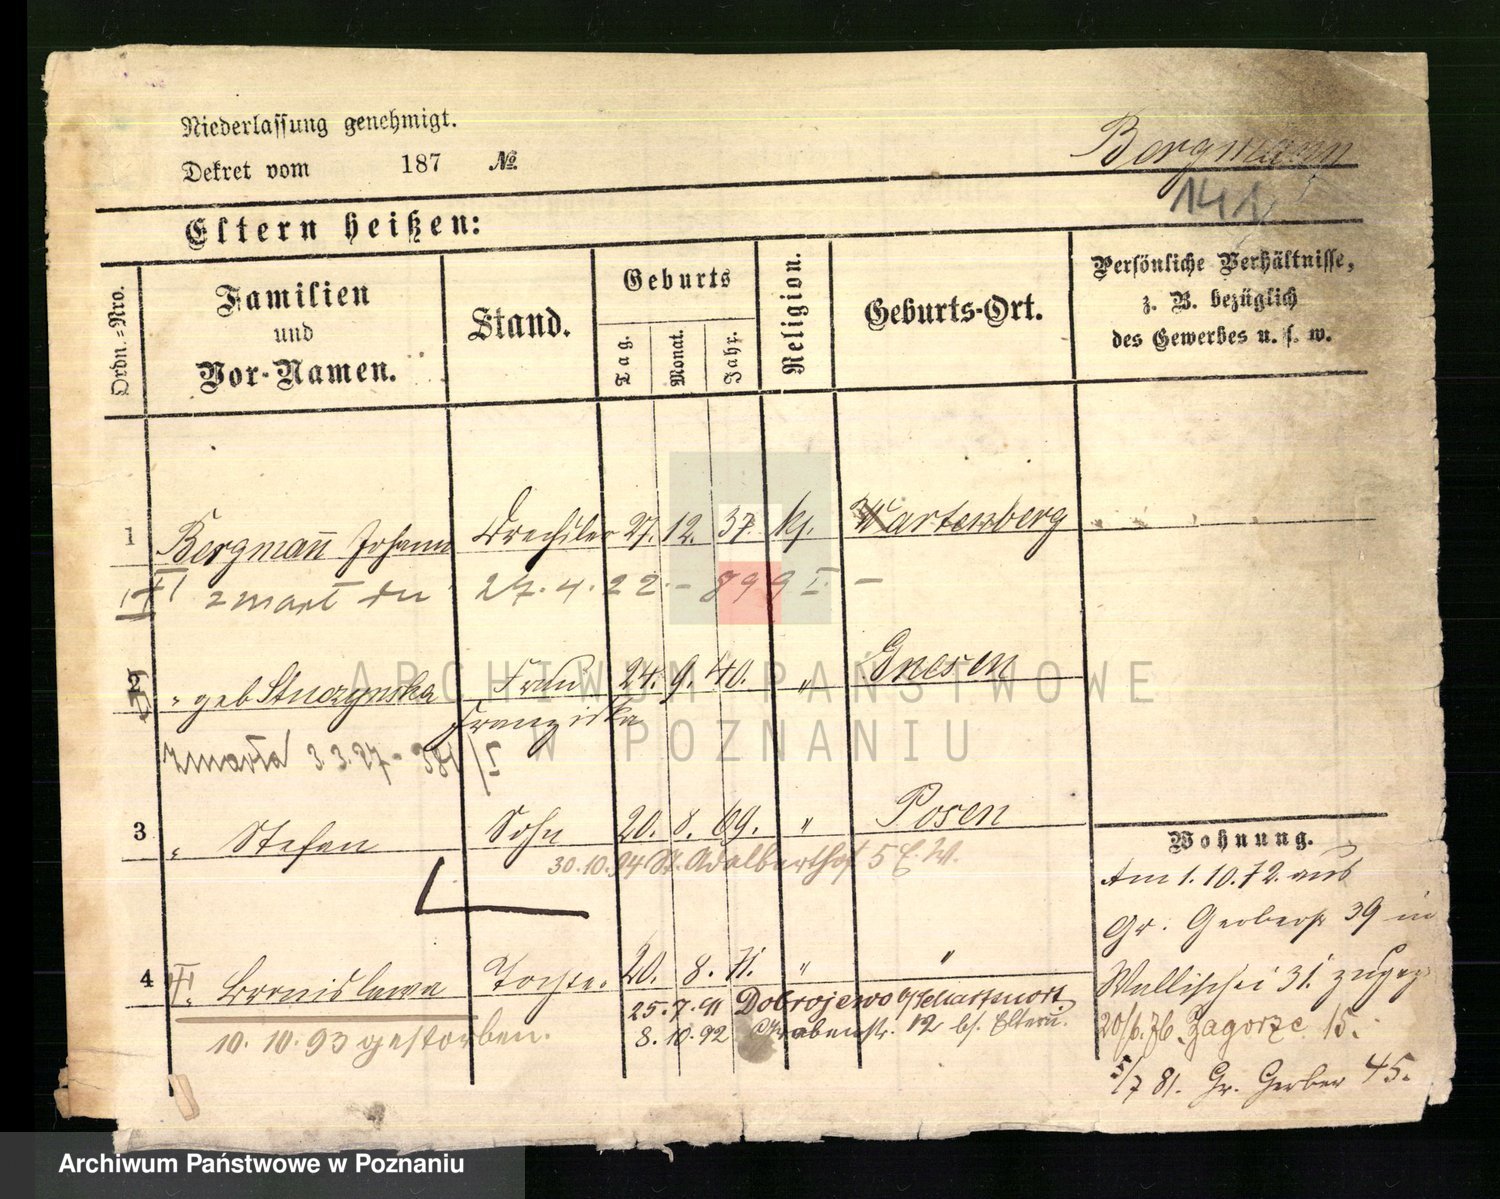 Niederlassung genehmigt.
Dekret vom 187 №
Bergmann
141
Eltern heißen:
Ordn.-Nro.
Familien und Vor-Namen.
Stand.
Geburts
Tag. Monat. Jahr.
Religion.
Geburts-Ort.
Persönliche Verhältnisse,
z. B. bezüglich
des Gewerbes u. s. w.
1 Bergmann Johann Drechsler 27. 12. 37. kf. Wartenberg
zmarł dn 27.4.22.- 899 I. -
2 " geb Stuczynska Frau 24. 9. 40. " Gnesen
Franziska
zmarła 3.3.27- 381/I
3 " Stefan Sohn 20. 8. 69. " Posen
30.10.94 St. Adalberthof 5 b. W.
4 Bronislawa Tochter 20. 8. 71. " "
25.7.91 Dobrojewo b/Scharfenort
8.10.92 Grabenstr. 12 bs. Eltern.
10.10.93 gestorben.
Wohnung.
Am 1.10.72. aus
Gr. Gerberst 39 in
Wallischei 31. zugez
20/6.76. Zagorze 15.
5/7 81. Gr. Gerber 45.
ARCHIWUM PAŃSTWOWE
W POZNANIU
Archiwum Państwowe w Poznaniu